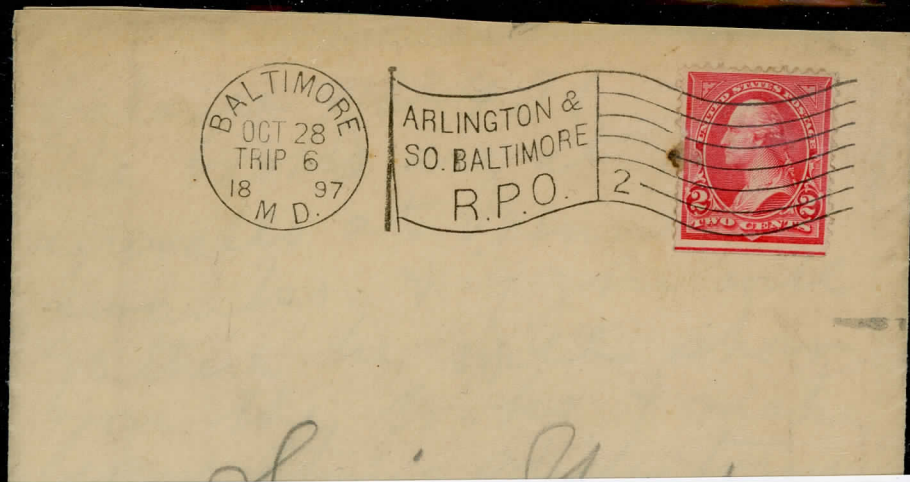 BALTIMORE
OCT 28
TRIP 6
18 97
MD.
ARLINGTON &
SO. BALTIMORE
R.P.O.
2
UNITED STATES POSTAGE
2 2
TWO CENTS